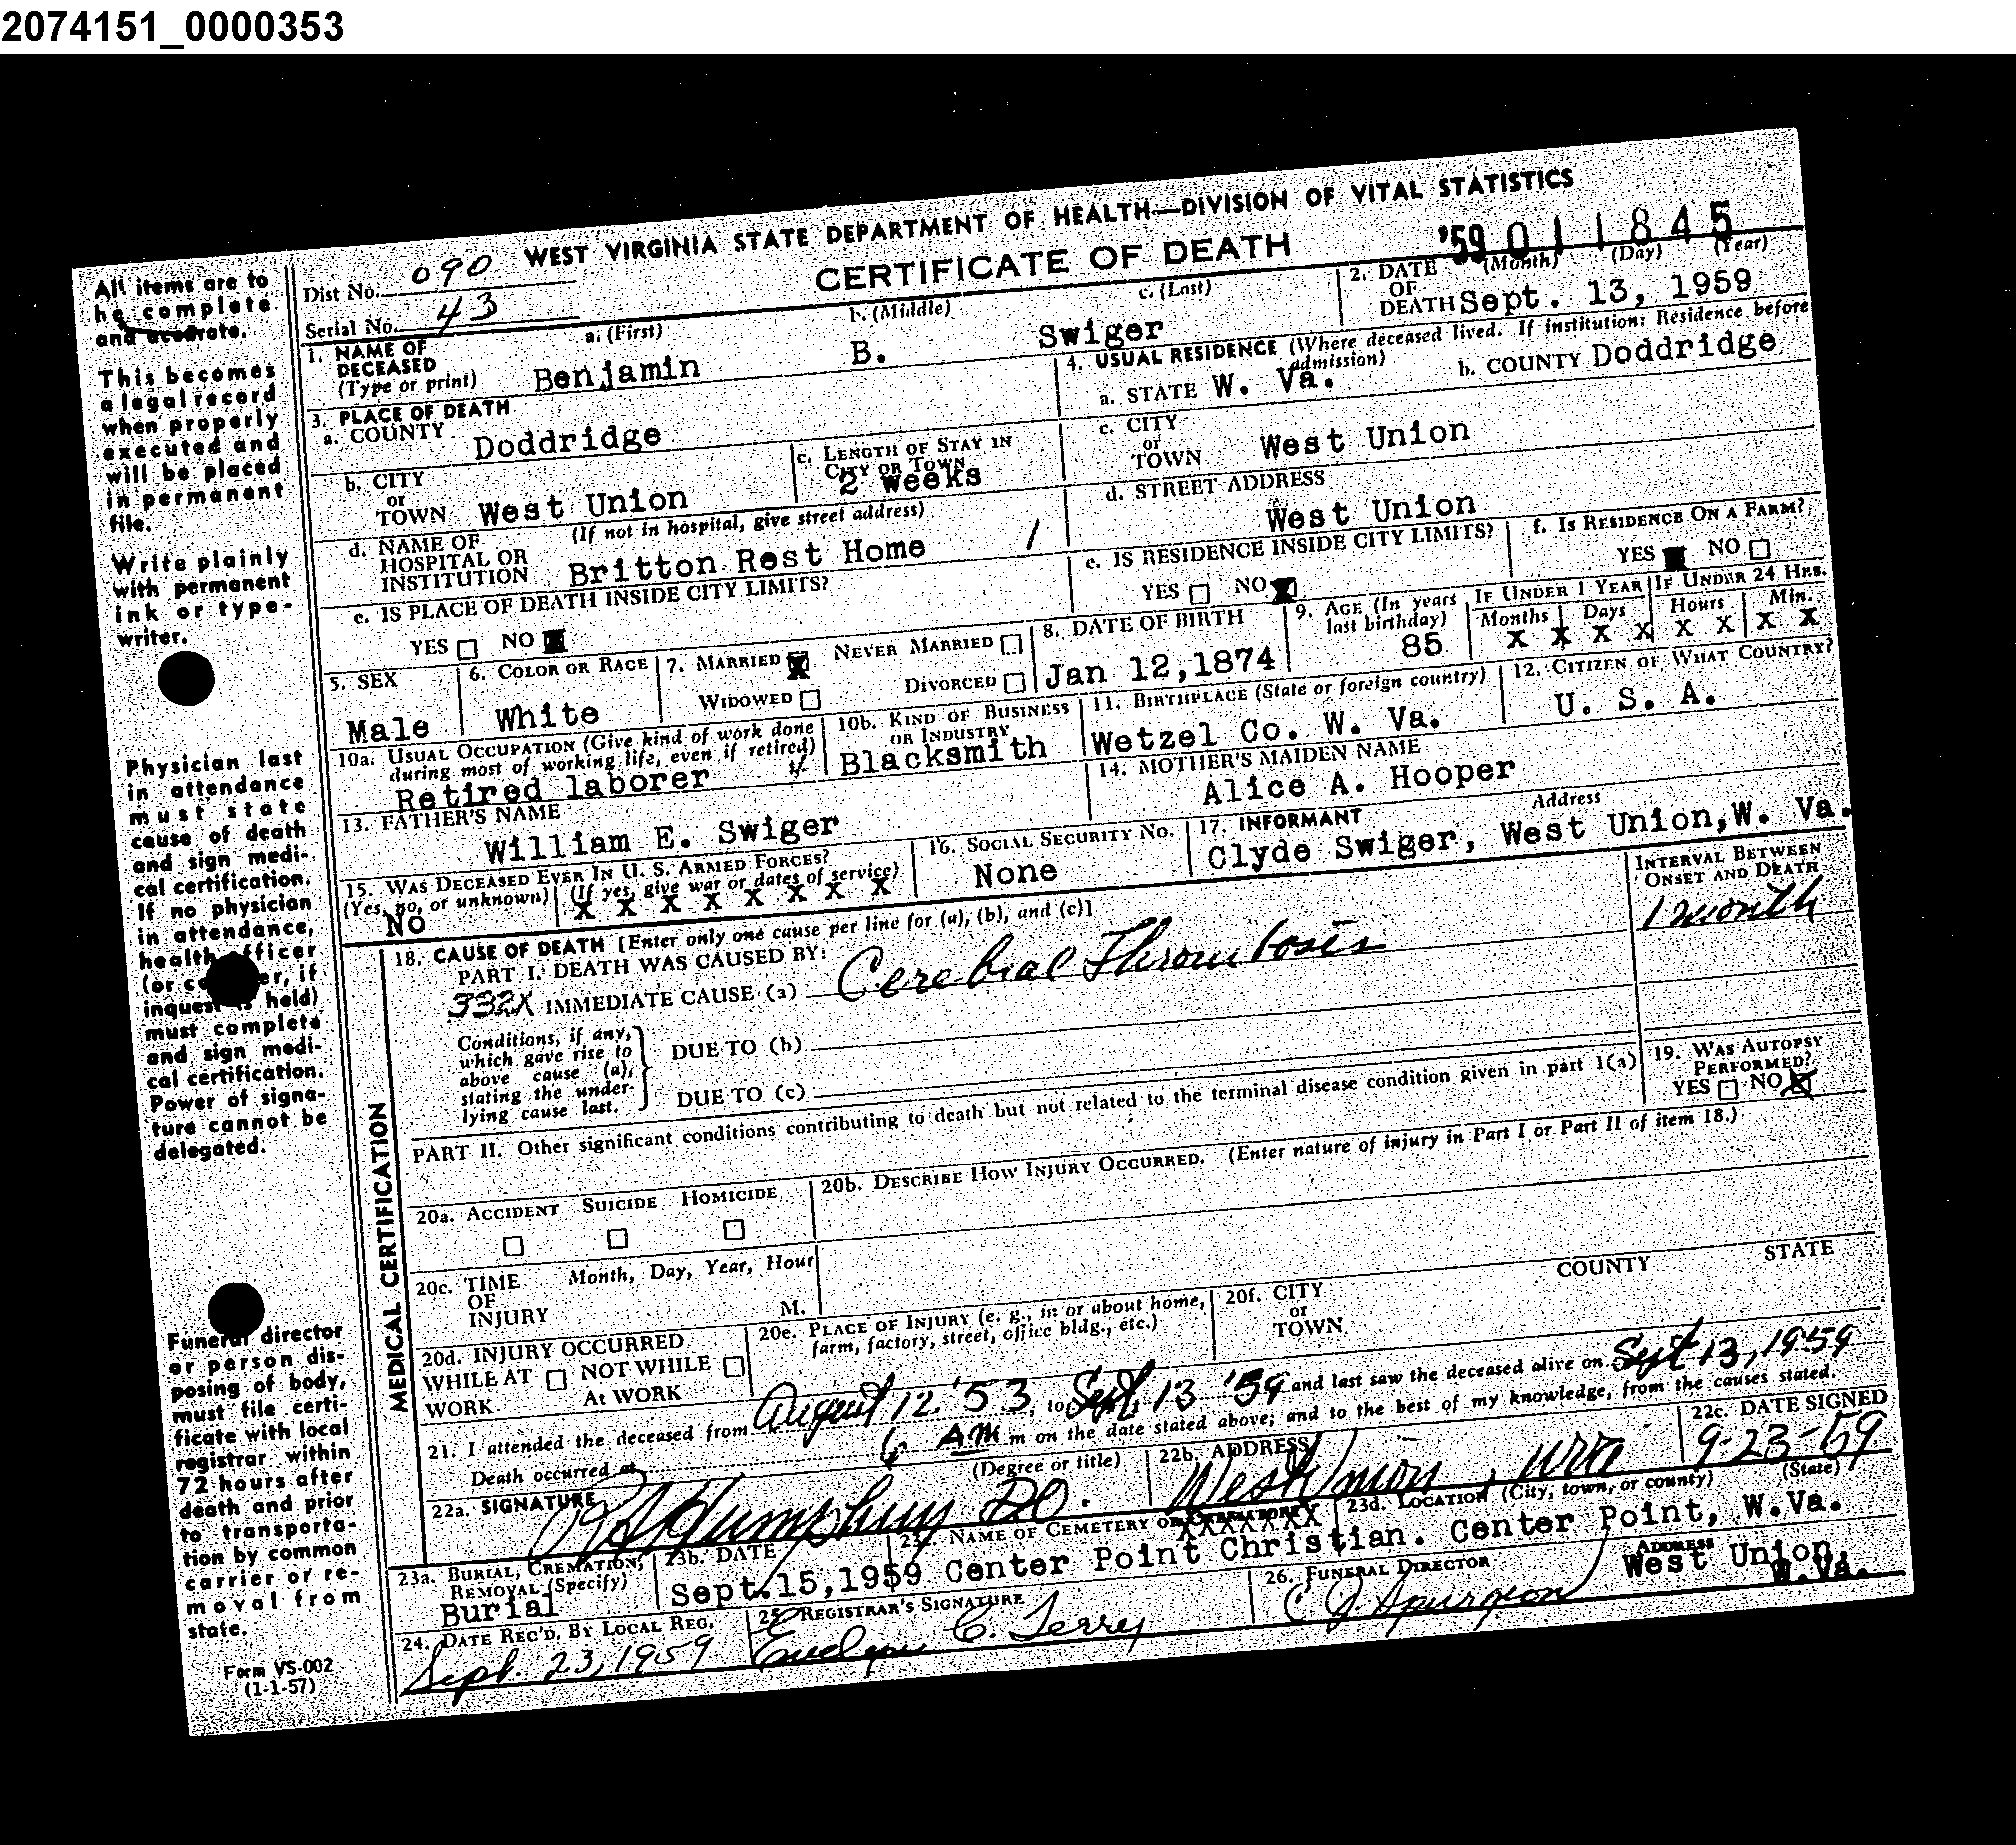 2074151_0000353
WEST VIRGINIA STATE DEPARTMENT OF HEALTH—DIVISION OF VITAL STATISTICS
CERTIFICATE OF DEATH
'59 011845
Dist No. 090
Serial No. 43
All items are to
be complete
and accurate.
This becomes
a legal record
when properly
executed and
will be placed
in permanent
file.
Write plainly
with permanent
ink or type-
writer.
Physician last
in attendance
must state
cause of death
and sign medi-
cal certification.
If no physician
in attendance,
health officer
(or coroner, if
inquest is held)
must complete
and sign medi-
cal certification.
Power of signa-
ture cannot be
delegated.
Funeral director
or person dis-
posing of body,
must file certi-
ficate with local
registrar within
72 hours after
death and prior
to transporta-
tion by common
carrier or re-
moval from
state.
Form VS-002
(1-1-57)
1. NAME OF DECEASED (Type or print) a. (First) Benjamin b. (Middle) B. c. (Last) Swiger
2. DATE OF DEATH (Month) (Day) (Year) Sept. 13, 1959
3. PLACE OF DEATH
a. COUNTY Doddridge
b. CITY or TOWN West Union
c. LENGTH OF STAY IN CITY OR TOWN 2 weeks
d. NAME OF HOSPITAL OR INSTITUTION (If not in hospital, give street address) Britton Rest Home /
e. IS PLACE OF DEATH INSIDE CITY LIMITS?
YES NO X
4. USUAL RESIDENCE (Where deceased lived. If institution: Residence before admission)
a. STATE W. Va. b. COUNTY Doddridge
c. CITY or TOWN West Union
d. STREET ADDRESS West Union
e. IS RESIDENCE INSIDE CITY LIMITS? YES NO X
f. IS RESIDENCE ON A FARM? YES X NO
5. SEX Male
6. COLOR OR RACE White
7. MARRIED X NEVER MARRIED WIDOWED DIVORCED
8. DATE OF BIRTH Jan 12,1874
9. AGE (In years last birthday) 85
IF UNDER 1 YEAR Months Days X X X X
IF UNDER 24 HRS. Hours Min. X X X X
10a. USUAL OCCUPATION (Give kind of work done during most of working life, even if retired) Retired laborer
10b. KIND OF BUSINESS OR INDUSTRY Blacksmith
11. BIRTHPLACE (State or foreign country) Wetzel Co. W. Va.
12. CITIZEN OF WHAT COUNTRY? U. S. A.
13. FATHER'S NAME William E. Swiger
14. MOTHER'S MAIDEN NAME Alice A. Hooper
15. WAS DECEASED EVER IN U. S. ARMED FORCES? (Yes, no, or unknown) No (If yes, give war or dates of service) X X X X X X X X
16. SOCIAL SECURITY No. None
17. INFORMANT Address Clyde Swiger, West Union,W. Va.
MEDICAL CERTIFICATION
18. CAUSE OF DEATH [Enter only one cause per line for (a), (b), and (c)]
INTERVAL BETWEEN ONSET AND DEATH
PART I. DEATH WAS CAUSED BY:
332X IMMEDIATE CAUSE (a) Cerebral Thrombosis 1 month
Conditions, if any, which gave rise to above cause (a), stating the under-lying cause last.
DUE TO (b)
DUE TO (c)
PART II. Other significant conditions contributing to death but not related to the terminal disease condition given in part 1(a)
19. WAS AUTOPSY PERFORMED? YES NO X
20a. ACCIDENT SUICIDE HOMICIDE
20b. DESCRIBE HOW INJURY OCCURRED. (Enter nature of injury in Part I or Part II of item 18.)
20c. TIME OF INJURY Month, Day, Year, Hour M.
20d. INJURY OCCURRED WHILE AT WORK NOT WHILE AT WORK
20e. PLACE OF INJURY (e. g., in or about home, farm, factory, street, office bldg., etc.)
20f. CITY or TOWN COUNTY STATE
21. I attended the deceased from August 12 '53, to Sept 13 '59 and last saw the deceased alive on Sept 13, 1959
Death occurred at 6 AM m on the date stated above; and to the best of my knowledge, from the causes stated.
22a. SIGNATURE (Degree or title) Humphrey DO.
22b. ADDRESS West Union, WVa
22c. DATE SIGNED 9-23-59
23a. BURIAL, CREMATION, REMOVAL (Specify) Burial
23b. DATE Sept.15,1959
23c. NAME OF CEMETERY OR CREMATORY XXXXXXX Center Point Christian.
23d. LOCATION (City, town, or county) (State) Center Point, W.Va.
24. DATE REC'D. BY LOCAL REG. Sept. 23, 1959
25. REGISTRAR'S SIGNATURE Evelyn C. Terry
26. FUNERAL DIRECTOR ADDRESS C J Spurgeon West Union, W.Va.